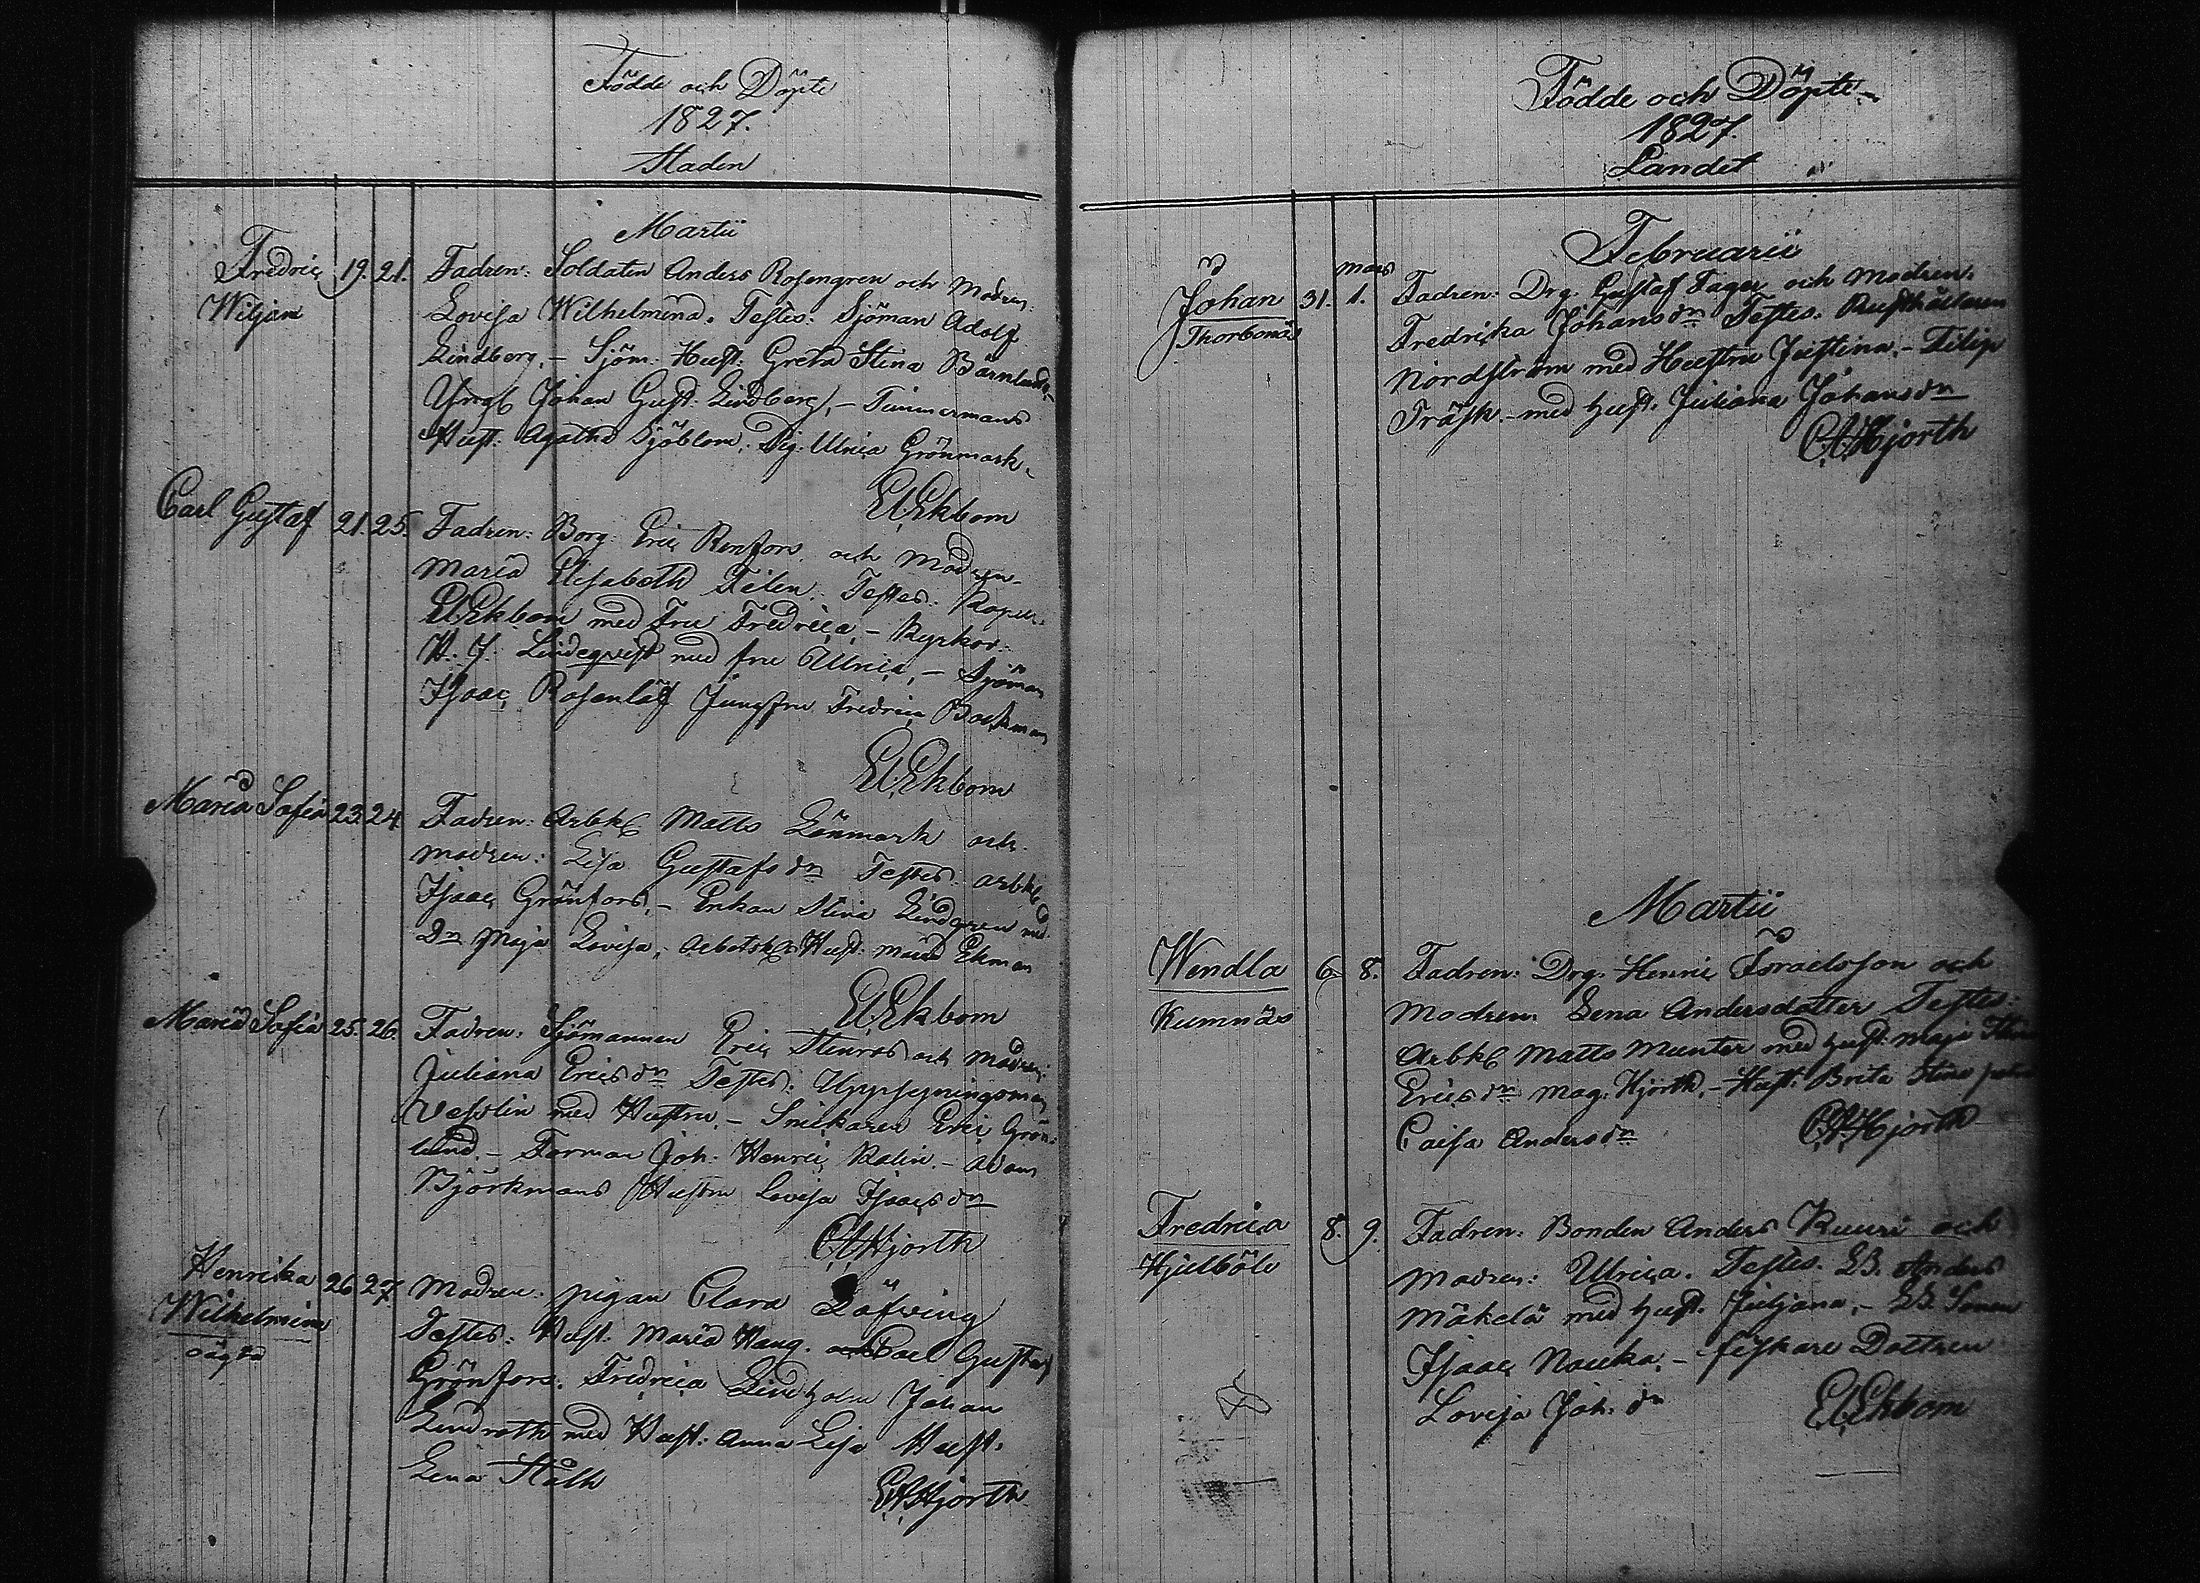 Födde och Döpte
1827.
Staden
Martii
Fredric 19. 21. Fadren: Soldaten Anders Rosengren och Modren:
Wiljam Lovisa Wilhelmina. Testes: Sjöman Adolf
Lindberg, - Sjöm. Hust. Greta Stina Björnlund,-
Yngl Johan Gust. Lindberg, - Timmermans
Hust. Agatha Sjöblom. Pig. Ulrica Grönmark.
Ekbom
Carl Gustaf 21. 25. Fadren: Borg. Eric Renfors och Modren
Maria Elisabeth Felen. Testes: Kapell.
Ekbom med Fru Fredrica, - Kyrkoh.
H. J. Lindeqvist med fru Ulrica, - Sjöman
Isaac Rosenlöf Jungfru Fredrica Backman
Ekbom
Maria Sofia 23. 24. Fadren: Arbk Matts Lönmark och
modren: Lisa Gustafsdn Testes: arbk
Isaac Grönfors, - Enkan Stina Lindgren med
Dn Maja Lovisa, Arbetsk Hust: Maria Ekman
Ekbom
Maria Sofia 25. 26. Fadren: Sjömannen Eric Stenros och Modren:
Juliana Ericsdn Testes: Uppsyningsman
Vesslin med Hustru, - Snickaren Eric Grön-
lund. - Forman Joh. Henric Kalin. - Adam
Björkmans Hustru Lovisa Isaacsdn
Hjorth
Henrika 26 27. Modren: pigan Clara Löfving
Wilhelmina Testes: Hust. Maria Haug. Carl Gustaf
oägta Grönfors. Fredrica Lindholm Johan
Lindroth med Hust: Anna Lisa Hust.
Lena Stålh
Hjorth
Födde och Döpte
1827.
Landet
Februarii
mars
Johan 31. 1. Fadren: Drg. Gustaf Fager och Modren:
Thorbonäs Fredrika Johansdn Testes. Rusthållaren
Nordström med Hustru Justina. - Filip
Träsk. - med hust. Juliana Johansdn
Hjorth
Martii
Wendla 6. 8. Fadren: Drg. Henric Israelsson och
Kumnäs Modren: Lena Andersdotter Testes:
Arbk Matts Munter med hust. Maja Stina
Ericsdn Mag. Hjorth, - Hust: Brita Stina
Caisa Andersdn
Hjorth
Fredrica 8. 9. Fadren: Bonden Anders Kuuri och
Hjulböle Modren: Ulrica. Testes. LB. Anders
Mäkelä med hust. Juljana, - LB. Sonen
Isaac Nauka, - fiskare Dottren
Lovisa Joh. dn
Ekbom